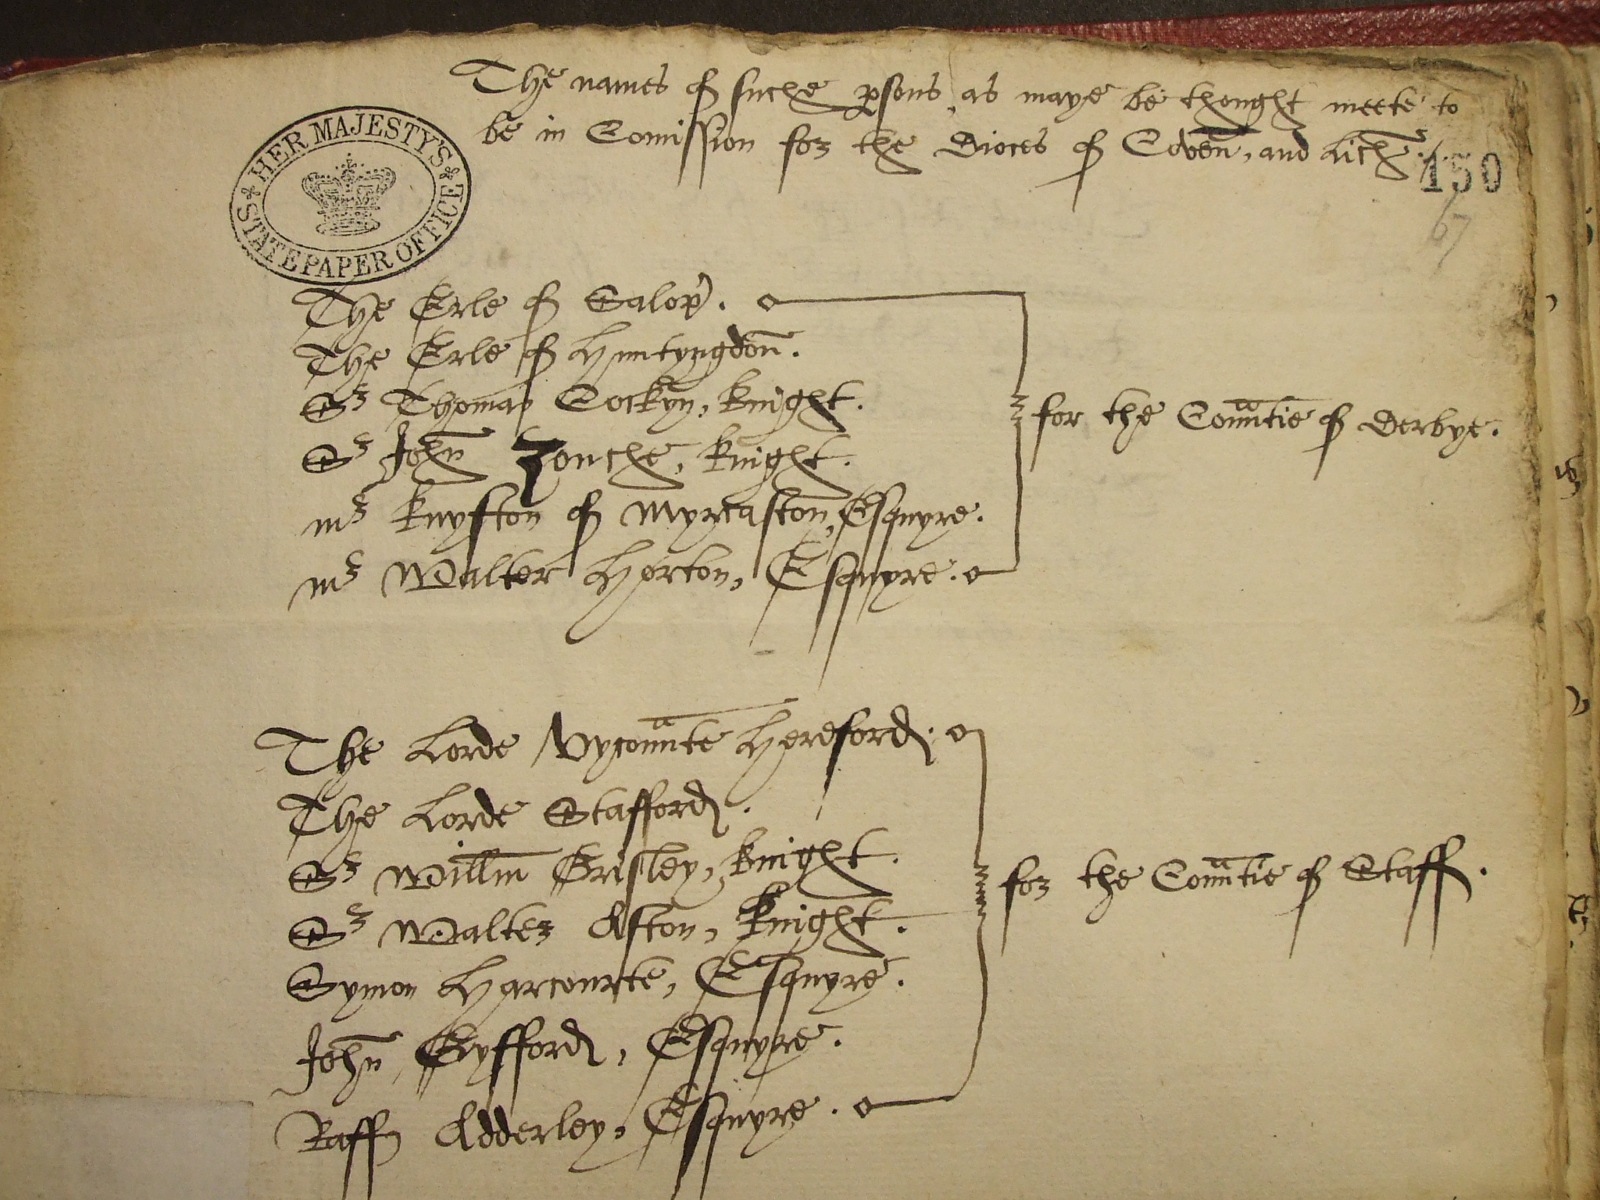 The names of suche psons, as maye be thought meete to
be in Comission for the Dioces of Coven̄, and Lich.
HER MAJESTY'S STATE PAPER OFFICE
150
67
The Erle of Salop.
The Erle of Huntyngdon̄.
Sr Thomas Cockyn, knight.
Sr Joh̄n Zouche, knight.
for the Countie of Derbye.
mr knyfton of Myrcaston, Esquyre.
mr Walter Horton, Esquyre.
The Lorde Vycounte Hereford.
The Lorde Stafford.
Sr Willm̄ Grisley, knight.
for the Countie of Staff.
Sr Walter Aston, knight.
Symon Harcourte, Esquyre.
Joh̄n Gyfford, Esquyre.
Raff Adderley, Esquyre.